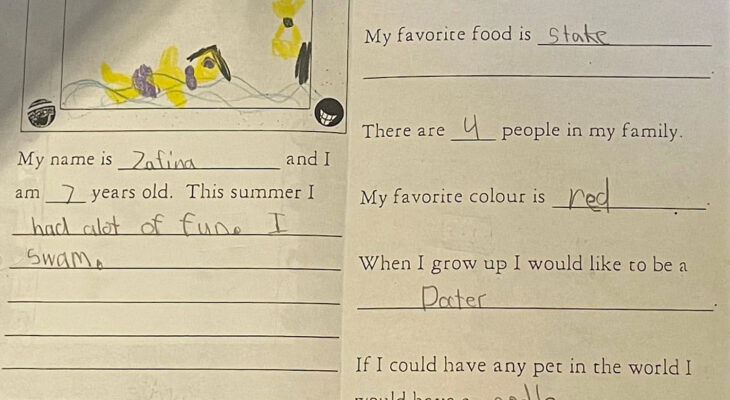 My name is Zafina and I
am 7 years old. This summer I
had alot of fun. I
swam.
My favorite food is stake
.
There are 4 people in my family.
My favorite colour is red.
When I grow up I would like to be a
Docter.
If I could have any pet in the world I
would have a